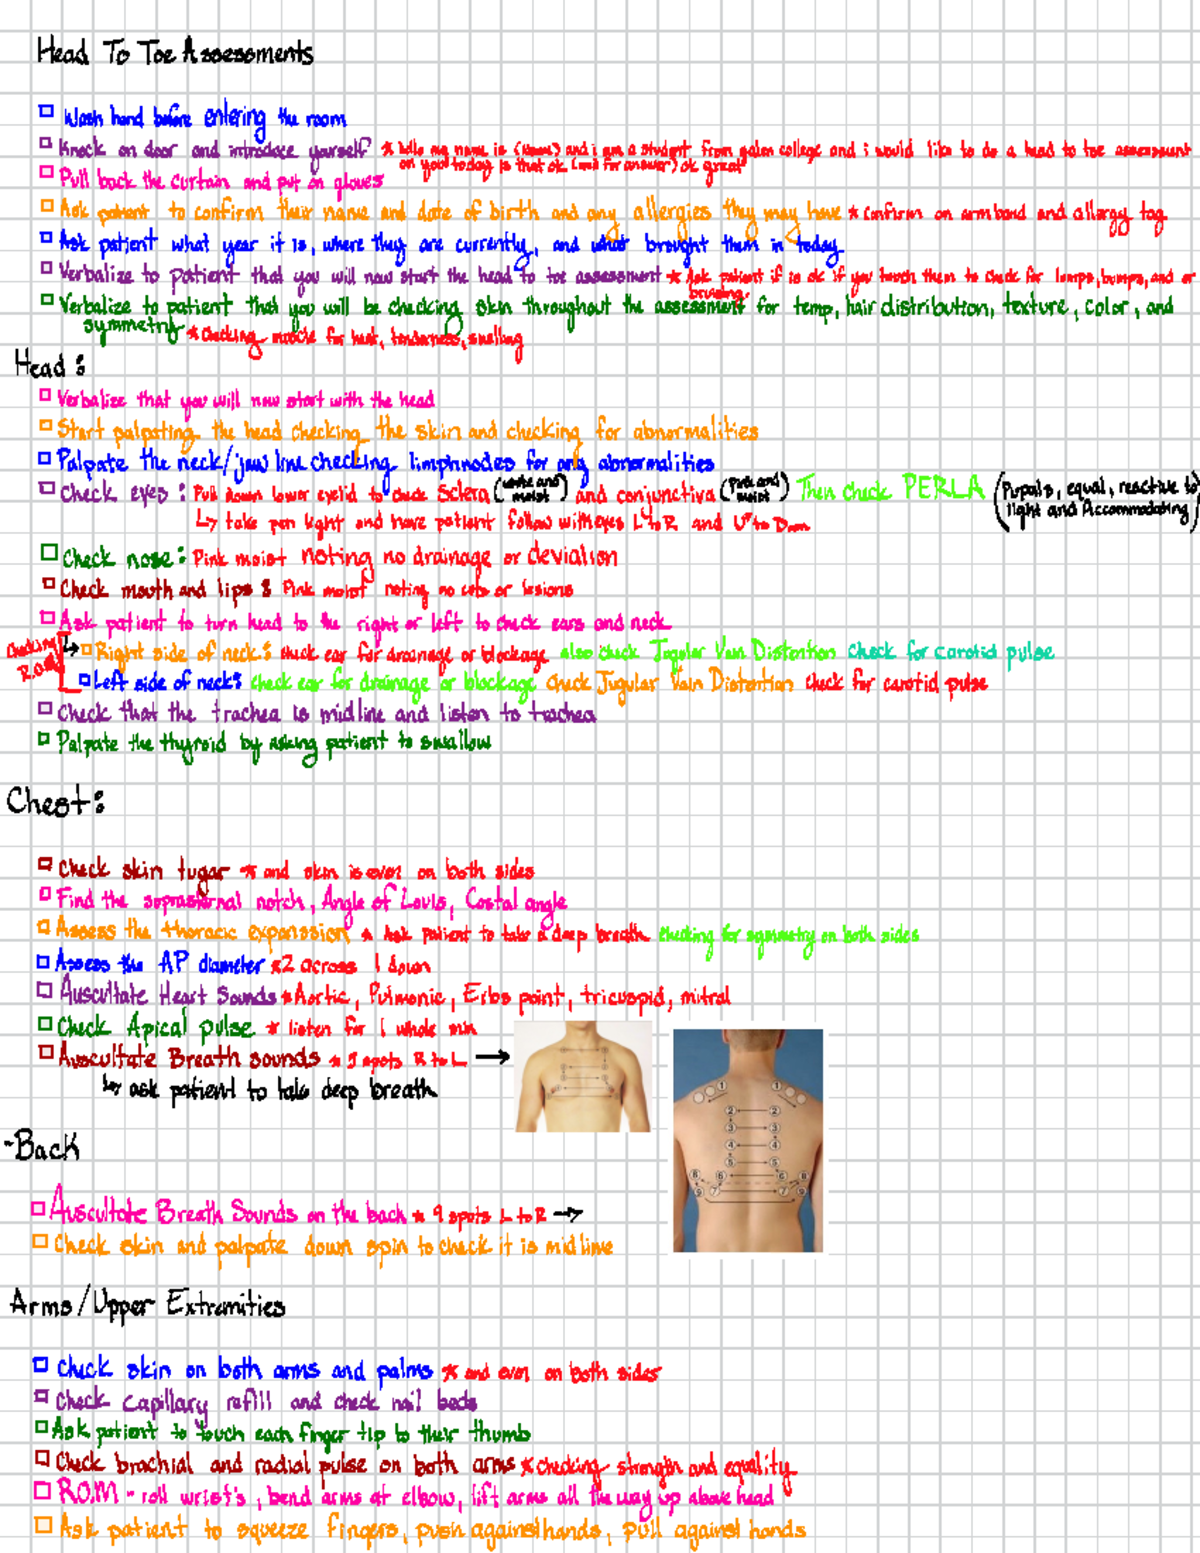 Head To Toe Assessments
Wash hand before entering the room
Knock on door and introduce yourself * hello my name is (Name) and i am a student from galen college and i would like to do a head to toe assessment
on you today is that ok (wait for answer) ok great
Pull back the curtain and put on gloves
Ask patient to confirm their name and date of birth and any allergies they may have * Confirm on armband and allergy tag
Ask patient what year it is, where they are currently, and what brought them in today
Verbalize to patient that you will now start the head to toe assessment * Ask patient if is ok if you touch them to check for lumps, bumps, and or
bruising.
Verbalize to patient that you will be checking skin throughout the assessment for temp, hair distribution, texture, color, and
symmetry * Checking muscle for heat, tenderness, swelling
Head:
Verbalize that you will now start with the head
Start palpating the head checking the skin and checking for abnormalities
Palpate the neck/jaw line checking limphnodes for any abnormalities
Check eyes: Pull down lower eyelid to check Sclera (white and moist) and conjunctiva (Pink and moist) Then check PERLA (Pupals, equal, reactive to light and Accommodating)
↳ take pen light and have patient follow with eyes L to R and U to Down
Check nose: Pink moist noting no drainage or deviation
Check mouth and lips: Pink moist noting no cuts or lesions
Ask patient to turn head to the right or left to check ears and neck
Checking R.O.M
Right side of neck: check ear for drainage or blockage also check Jugular Van Distention Check for carotid pulse
Left side of neck: check ear for drainage or blockage Check Jugular Vain Distention check for carotid pulse
Check that the trachea is midline and listen to trachea
Palpate the thyroid by asking patient to swallow
Chest:
Check skin tugar * and skin is even on both sides
Find the suprasternal notch, Angle of Louis, Costal angle
Assess the thoracic expanssion * Ask patient to take a deep breath checking for symmetry on both sides
Assess the AP diameter *2 across 1 down
Auscultate Heart Sounds *Aortic, Pulmonic, Erbs point, tricuspid, mitral
Check Apical pulse * listen for 1 whole min
Auscultate Breath sounds * 5 spots R to L →
↳ ask patient to take deep breath
-Back
Auscultate Breath Sounds on the back * 9 spots L to R →
Check skin and palpate down spin to check it is midline
Arms/Upper Extremities
Check skin on both arms and palms * and even on both sides
Check capillary refill and check nail beds
Ask patient to touch each finger tip to their thumb
Check brachial and radial pulse on both arms *checking strength and equality
R.O.M - roll wrist's, bend arms at elbow, lift arms all the way up above head
Ask patient to squeeze fingers, push against hands, pull against hands